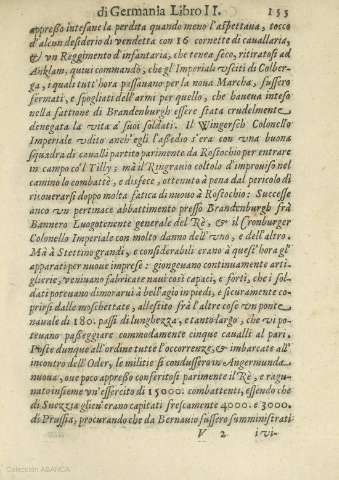 di Germania Libro II. 155
appresso intesane la perdita quando meno l'aspettaua, tocco
d'alcun desiderio di vendetta con 16 cornette di cauallaria,
& vn Reggimento d'infantaria, che tenea seco, ritiratosi ad
Anklam, qui comandò, che gl'Imperiali vsciti di Colber-
ga, i quali tutt'hora passauano per la noua Marcha, fussero
fermati, e spogliati dell'armi per quello, che haueua inteso
nella fattione di Brandenburgh essere stata crudelmente
denegata la vita a' suoi soldati. Il Wingersch Colonello
Imperiale vdito anch'egli l'assedio s'era con vna buona
squadra di caualli partito parimente da Rostochio per entrare
in campo co'l Tilly; mà il Ringrauio coltolo d'improuiso nel
camino lo combattè, e disfece, ottenuto à pena dal pericolo di
ricouerarsi doppo molta fatica di nuouo à Rostochio: Successe
anco vn pertinace abbattimento presso Brandenburgh frà
Bannero Luogotenente generale del Rè, & il Cronburger
Colonello Imperiale con molto danno dell'vno, e dell'altro.
Mà à Stettino grandi, e considerabili erano à quest'hora gl'
apparati per nuoue imprese: giongeuano continuamente arti-
glierie, veniuano fabricate naui così capaci, e forti, che i sol-
dati poteuano dimorarui à bell'agio in piedi, e sicuramente co-
prirsi dalle moschettate, allestito frà l'altre cose vn ponte
nauale di 180. passi di lunghezza, e tanto largo, che vi po-
teuano passeggiare commodamente cinque caualli al pari.
Poste dunque all'ordine tutte l'occorrenze, & imbarcate all'
incontro dell'Oder, le militie si condussero in Angermunda
nuoua, oue poco appresso conferitosi parimente il Rè, e ragu-
nato insieme vn'essercito di 15000. combattenti, essendo che
di Suezzia gli eu'erano capitati frescamente 4000. e 3000.
di Prussia, procurando che da Bernauio fussero somministrati
V 2 i vi-
Colección ABANCA